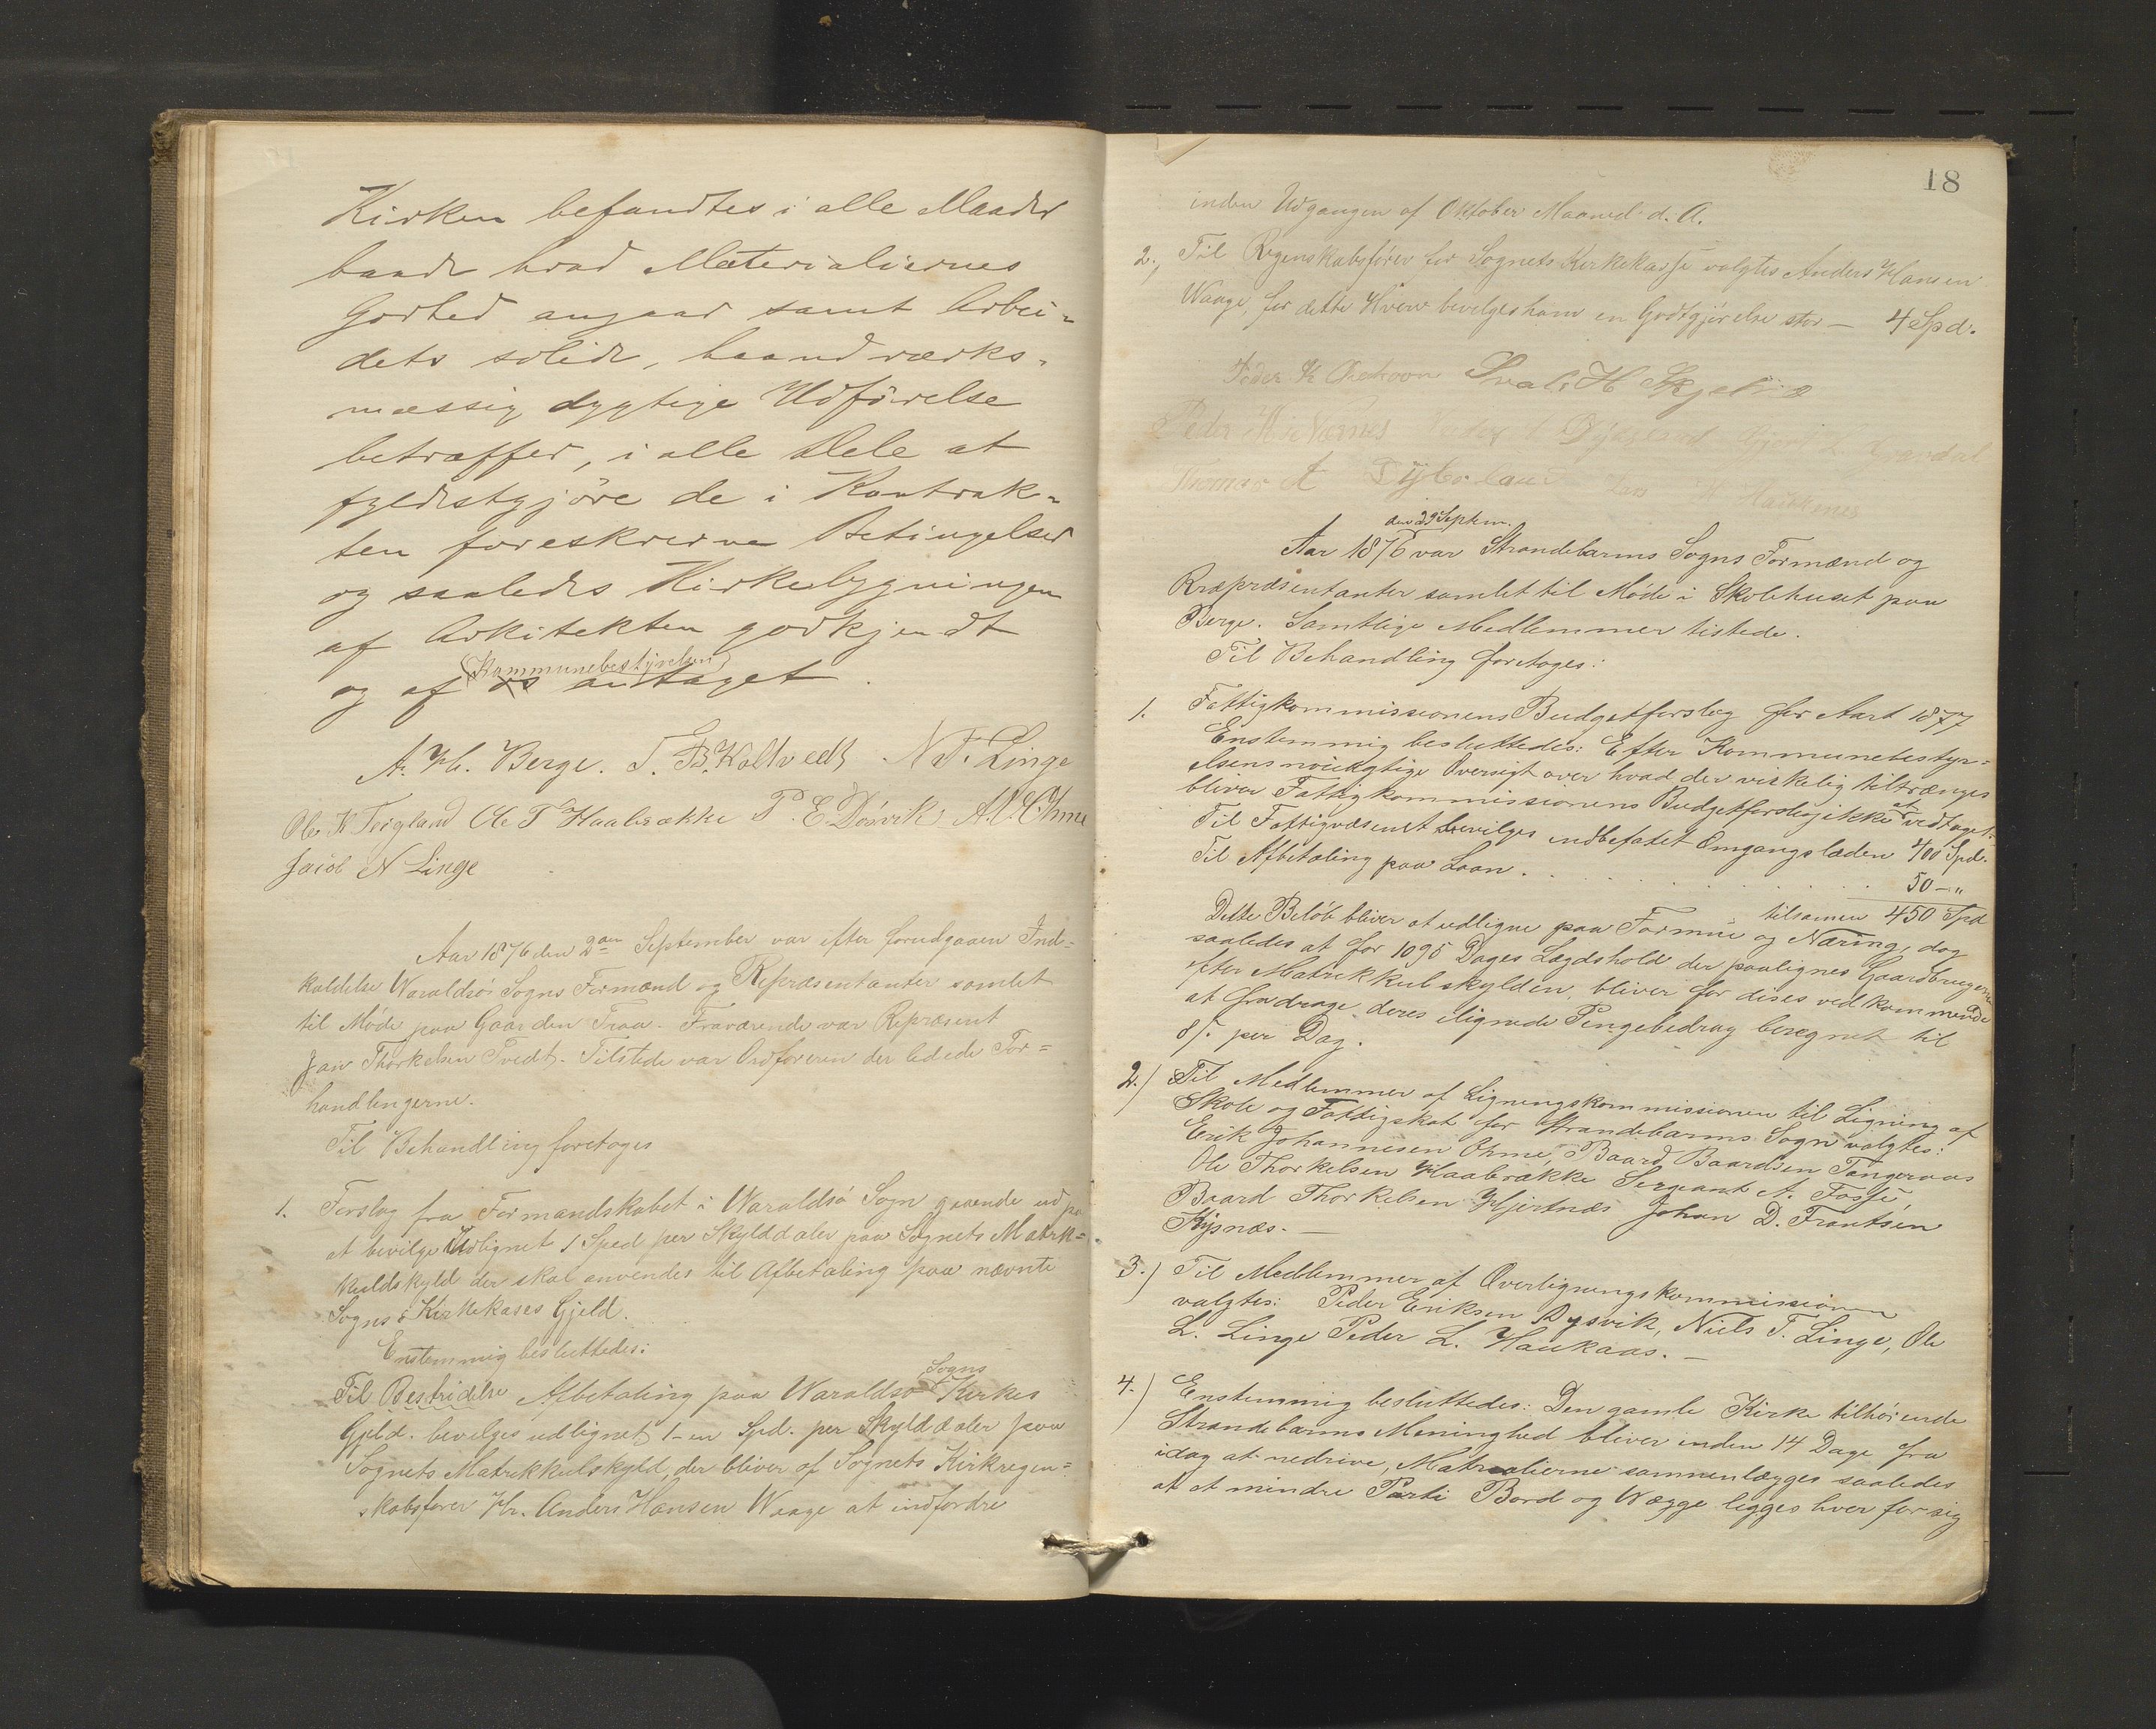 Kirken befandtes i alle Maader
baade hvad Materialiernes
Godhed angaar samt Arbei-
dets solide, haandværks-
mæssig dygtige Udførelse
betræffer, i alle Dele at
fyldestgjøre de i Kontrak-
ten foreskrevne Betingelser
og saaledes Kirkebygningen
af Arkitekten godkjendt
Kommunebestyrelsen
og af os antaget.
A. H. Berge. T. B. Koltvedt N T. Linge
Ole K Teigland Ole T Haabrække P. E. Dysvik A. O. Ohme
Jacob N Linge
Aar 1876 den 2den September var efter forudgaaen Ind-
kaldelse Waraldsø Sogns Formænd og Repræsentanter samlet
til Møde paa Gaarden Traa. Fraværende var Repræsent
Jan Thorkelsen Tvedt. Tilstede var Ordføreren der ledede For=
handlingerne.
Til Behandling foretoges
1. Forslag fra Formandskabet i Waraldsø Sogn gaaende ud pa
at bevilge Udlignet 1 Sped per Skylddaler paa Sognets Matrk=
kulskyld der skal anvendes til Afbetaling paa nævnte
Sogns Kirkekases Gjeld.
Enstemmig besluttedes:
Sogns
Til Bestridelse Afbetaling paa Waraldsø Kirkes
Gjeld. bevilges udlignet 1-en Spd. per Skylddaler paa
Sognets Matrikkulskyld, der bliver af Sognets Kirkregen=
skabsfører Hr. Anders Hansen Waage at indfordre
18
inden Udgangen af Oktober Maaned d. A.
2., Til Regnskabsfører for Sognets Kirkekasse valgtes Anders Hansen
Waage, for dette Hverv bevilges ham en Godtgjørelse stor — 4 Spd.
Peder Hral. H Skjelnes
Peder
Thomas A
den 29 Septbm.
Aar 1876 var Strandebarms Sogns Formænd og
Repræsentanter samlet til Møde i Skolehuset paa
Berge. Samtlige Medlemmer tistede.
Til Behandling foretoges:
1. Fattigkommissionens Budgetforslag for Aart 1877
Enstemmig besluttedes: Efter Kommunebestyr=
elsens nøiagtige Oversigt over hvad der virkelig tiltrænges
bliver Fattigkommissionens Budgetforslag ikke at vedtaget.
Til Fattigvæsenet bevilges indbefatet Omgangslæden 400 Spd.
Til Afbetaling paa Laan . . . . . . . 50 — "
tilsamen 450 Spd
Dette Beløb bliver at udligne paa Formue og Næring, dog
saaledes at for 1095 Dages Lægdshold der paalignes Gaardbrugerne
efter Matrikkulskylden, bliver for dises vedkommende
at fradrage deres ilignede Pengebedrag beregnet til
8 s. per Dag.
2.) Til Medlemmer af Ligningskommissionen til Ligning af
Skole og Fattigskat for Strandebarms Sogn valgtes:
Erik Johannesen Ohme, Baard Baardsen Tangeraas
Ole Thorkelsen Haabrække Sergeant A. Fosse,
Baard Thorkelsen Hjertnæs Johan D. Frantsen
Kysnæs. —
3.) Til Medlemmer af Overligningskommissionen
valgtes: Peder Eriksen Dysvik, Niels T. Linge, Ole
L. Linge Peder L. Haukaas. —
4.) Enstemmig besluttedes: Den gamle Kirke tilhørende
Strandebarms Meninghed bliver inden 14 Dage fra
idag at nedrive, Matrealierne sammenlægges saaledes
at et mindre Parti Bord og Wægge ligges hver for sig